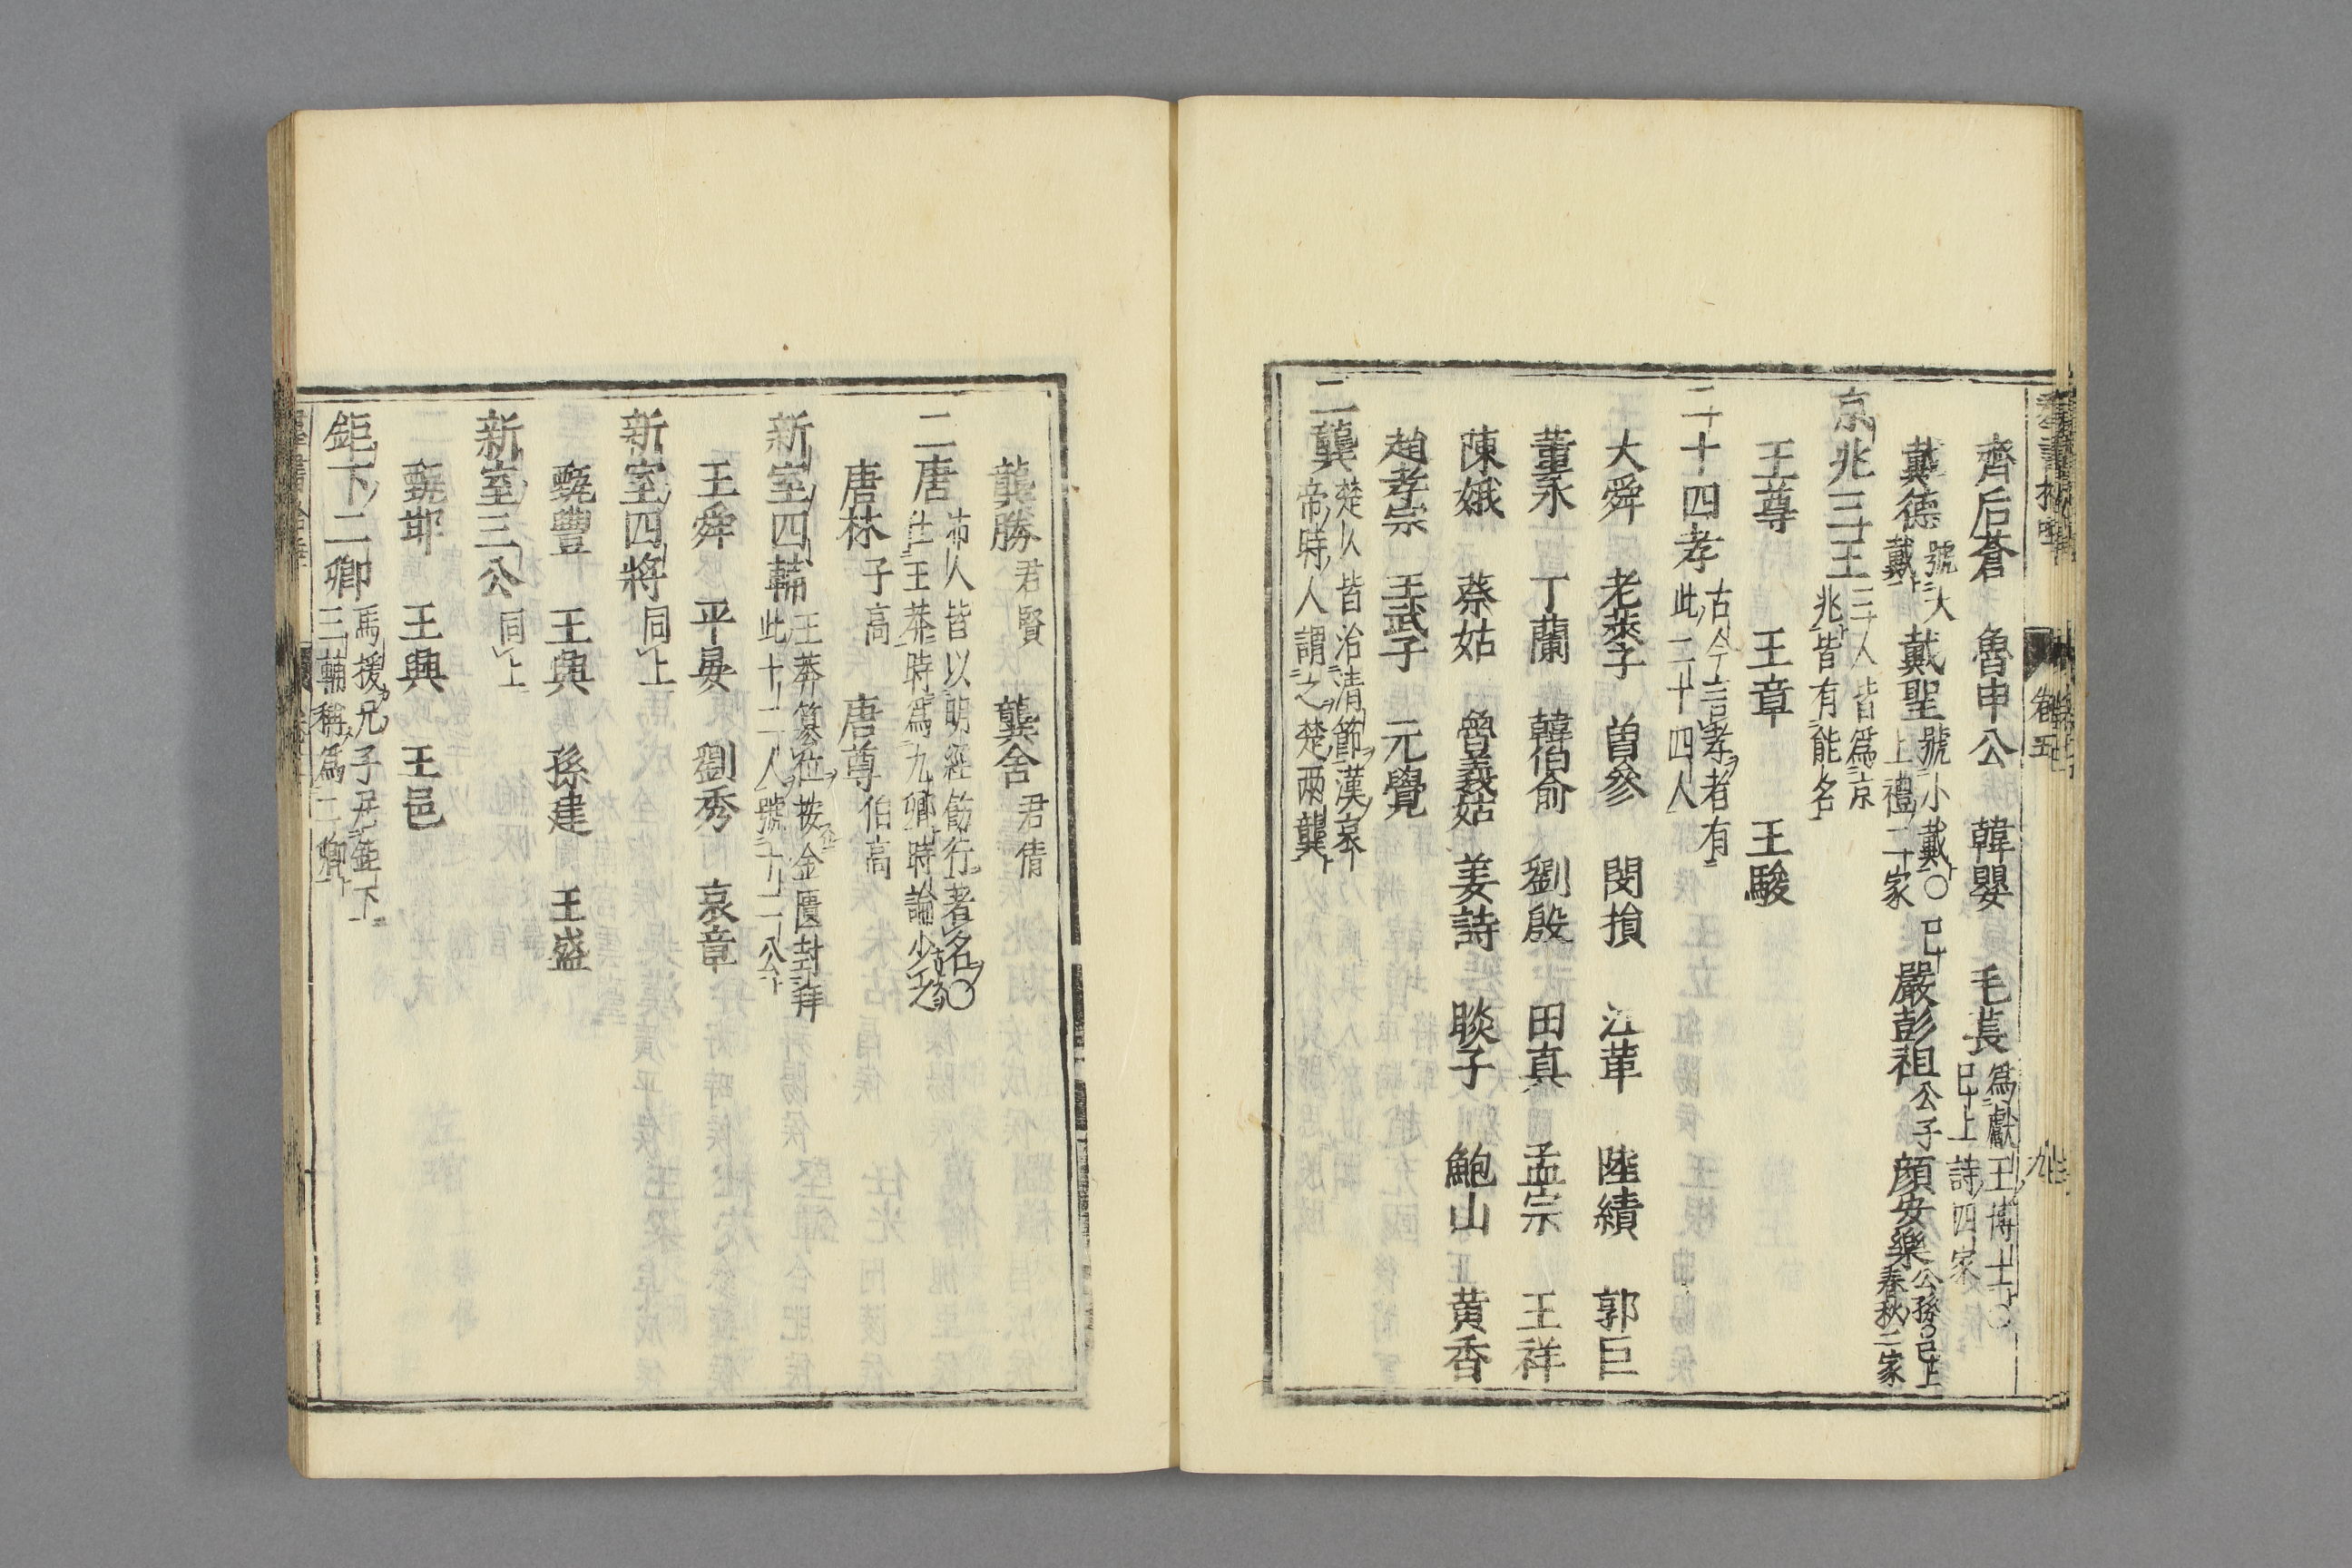 齊后蒼　魯申公　韓嬰　毛萇爲獻王博士〇已上詩四家
戴德號大戴　戴聖號小戴〇已上禮二家　嚴彭祖公子　顏安樂公孫〇已上春秋二家
京兆三王三人皆爲京兆皆有能名
王尊　王章　王駿
二十四孝古今言孝者有此二十四人
大舜　老萊子　曽參　閔損　江革　陸績　郭巨
董永　丁蘭　韓伯俞　劉殷　田真　孟宗　王祥
陳娥　蔡姑　魯義姑　姜詩　睒子　鮑山　黄香
趙孝宗　王武子　元覺
二龔楚人皆治清節漢哀帝時人謂之楚兩龔
卷五
九
龔勝君賢　龔舍君倩
二唐沛人皆以明經飭行者名〇仕王莽時爲九卿時論少之
唐林子高　唐尊伯高
新室四輔王莽篡位按金匱封拜此十二人號十二公
王舜　平晏　劉秀　哀章
新室四將同上
甄豐　王興　孫建　王盛
新室三公同上
甄邯　王興　王邑
鉅下二卿馬援兄子居鉅下三輔稱爲二卿